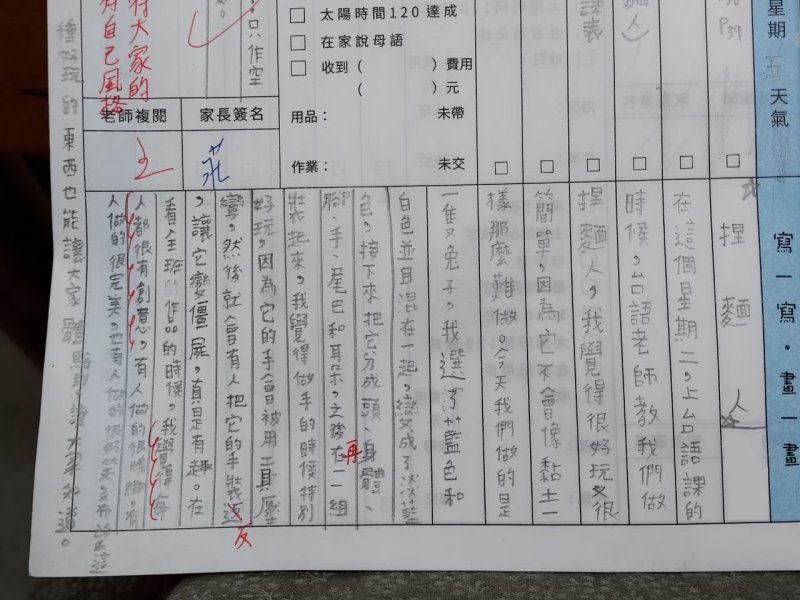 星期五天氣
寫一寫・畫一畫
P39
課表
太陽時間120達成
在家說母語
收到( )費用
( )元
用品: 未帶
作業: 未交
只作空
大家的
自己風格
老師複閱
家長簽名
王
莊
捏麵人
在這個星期二,上台語課的
時候,台語老師教我們做
捏麵人,我覺得很好玩又很
簡單,因為它不會像黏土一
樣那麼難做。今天我們做的是
一隻兔子,我選了藍色和
白色並且混在一起,變成了淡藍
色,接下來把它分成頭、身體、
腳、手、尾巴和耳朵,之後在一一組
再
裝起來,我覺得做手的時候特別
好玩,因為它的手會被用工具壓
彎,然後就會有人把它的手裝返
反
,讓它變僵屍,真是有趣。在
看全班的作品的時候,我覺得每
人都很有創意,有人做的很精緻,有
人做的很完美,也有人做的很好笑,希望這
種好玩的東西也能讓大家體驗到,讓大家知道。